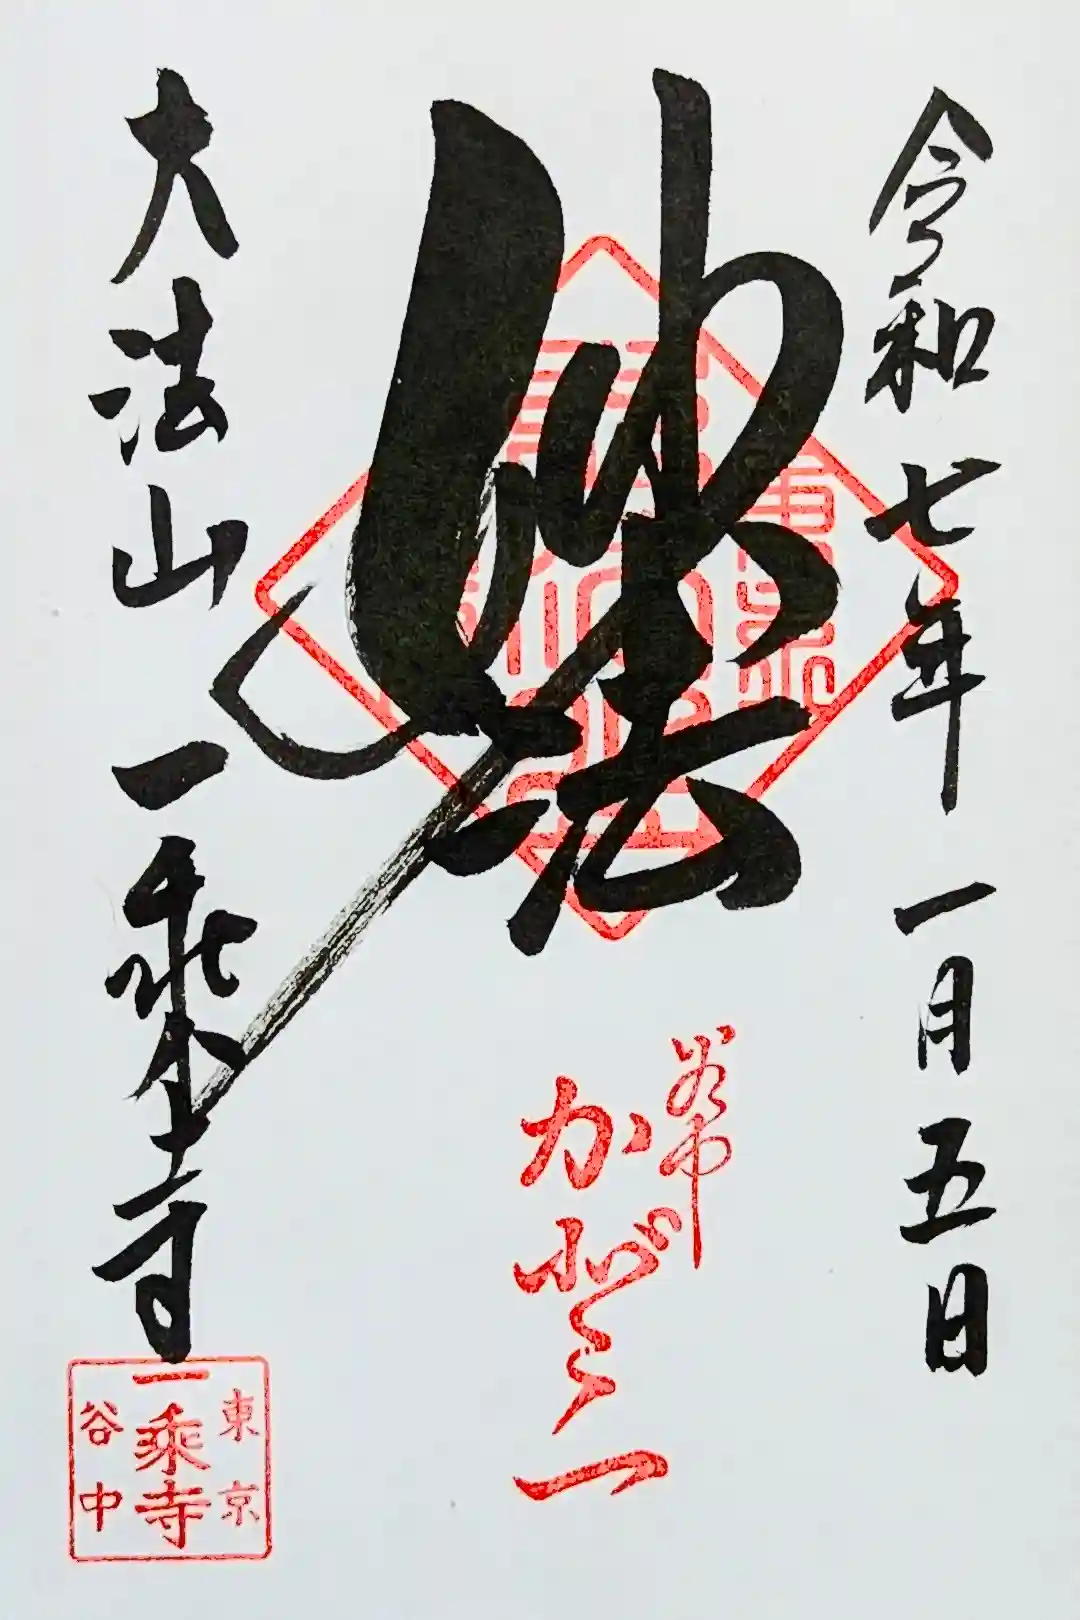 令和七年 一月五日
妙法
谷中
大法山 一乗寺
東京
一乗寺
谷中